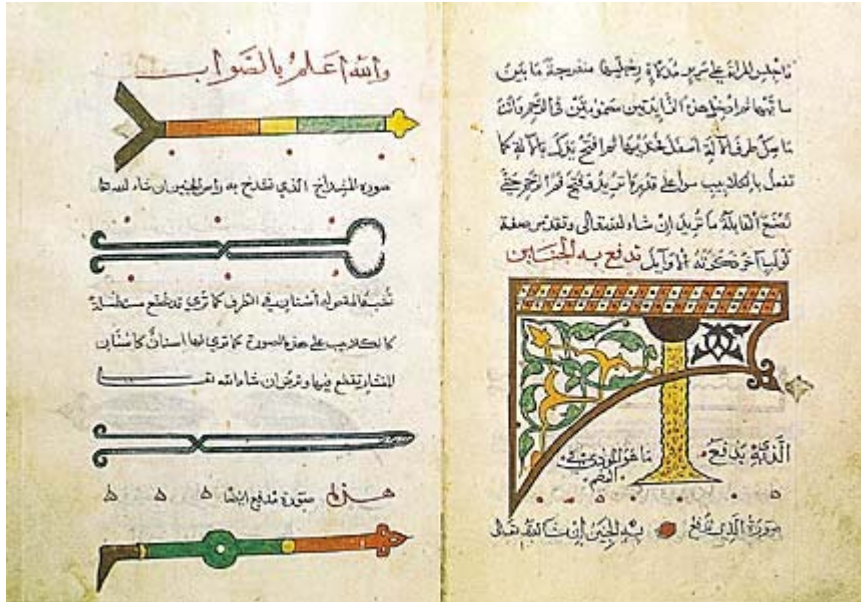 فاجلس المراة على سرير مدلاة رجليها منفرجة ما بين
ساقيها ثم ادخل هذين الزايدتين مضمومتين في الرحم وانت
ماسك طرف الالة اسفل فخذيها ثم افتح يدك بالالة كما
تفعل بالكلاليب سوا على قدر ما تريد فتح فم الرحم حتى
تصنع القابلة ما تريد ان شا الله تعالى
لولب اخر ذكرته الاوايل تدفع به الجنين
الذي يدفع
صورة الذي تدفع به الجنين ان شا الله تعالى
والله اعلم بالصواب
صورة المشداخ الذي تشدخ به راس الجنين ان شاء الله
تشبه المقص له اسنان في الطرف كما ترى وقد تصنع مستطيلة
كالكلاليب على هذه الصورة كما ترى لها اسنان كاسنان
المنشار يقطع بها وترض ان شا الله
هذه صورة مدفع ايضا